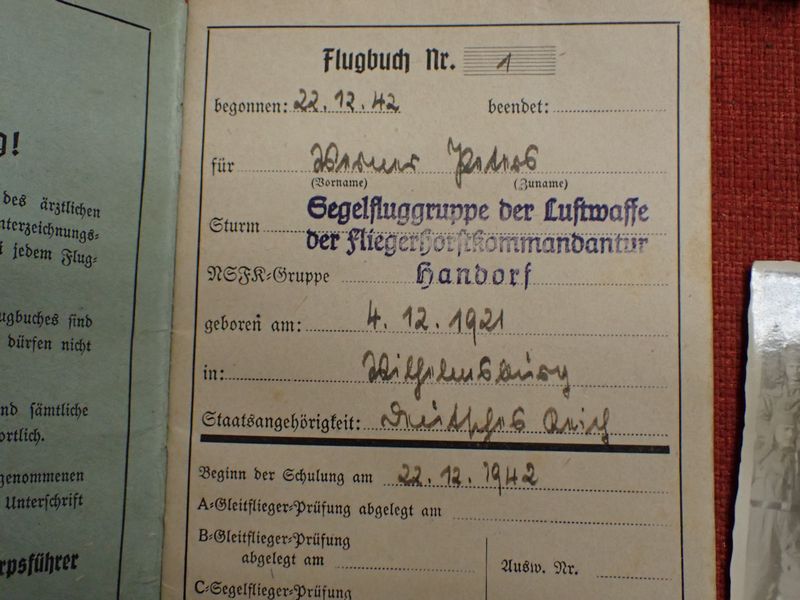 g!
des ärztlichen
nterzeichnungs-
i jedem Flug-
ugbuches sind
dürfen nicht
nd sämtliche
ortlich.
genommenen
Unterschrift
rpsführer
Flugbuch Nr. 1
begonnen: 22.12.42 beendet:
für Werner Peters
(Vorname) (Zuname)
Segelfluggruppe der Luftwaffe
Sturm
der Fliegerhorstkommandantur
NSFK-Gruppe Handorf
geboren am: 4.12.1921
in: Wilhelmsburg
Staatsangehörigkeit: Deutsches Reich
Beginn der Schulung am 22.12.1942
A-Gleitflieger-Prüfung abgelegt am
B-Gleitflieger-Prüfung
abgelegt am
Ausw. Nr.
C-Segelflieger-Prüfung